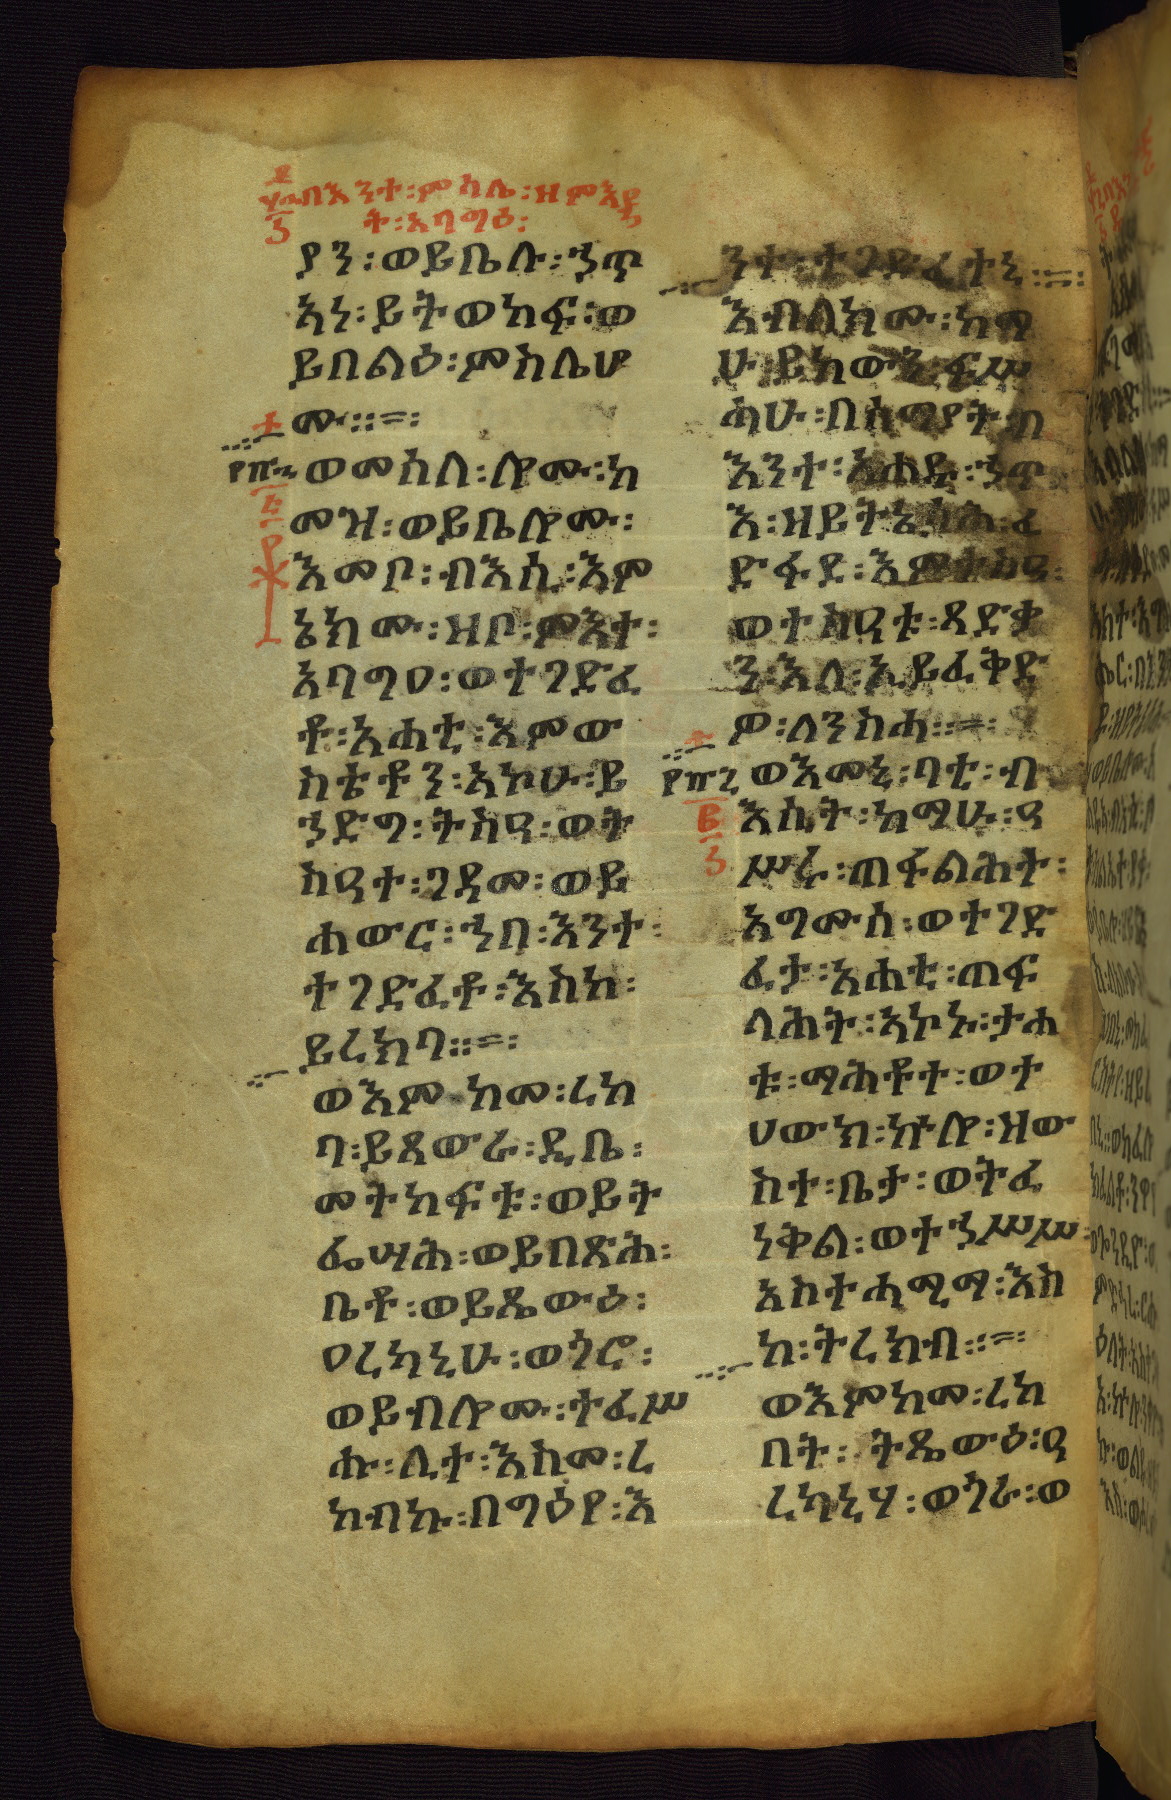 በእንተ፡ምሳሌ፡ዘምእ
ት፡አባግዕ፡
ያን፡ወይቤሉ፡ኃጥ
አነ፡ይትወከፍ፡ወ
ይበልዕ፡ምስሌሆ
ሙ፡፡=፡
ወመሰለ፡ሎሙ፡ከ
መዝ፡ወይቤሎሙ፡
እመቦ፡ብእሲ፡እም
ኔክሙ፡ዘቦ፡ምእተ፡
አባግዐ፡ወተገድፈ
ቶ፡አሐቲ፡እምው
ስቴቶን፡አኮሁ፡ይ
ኃድግ፡ትስዓ፡ወት
ስዓተ፡ገዳመ፡ወይ
ሐውር፡ኀበ፡እንተ፡
ተገድፈቶ፡እስከ፡
ይረክባ፡፡=፡
ወእምከመ፡ረከ
ባ፡ይጸውራ፡ዲቤ፡
መትከፍቱ፡ወይት
ፌሣሕ፡ወይበጽሕ፡
ቤቶ፡ወይጼውዕ፡
ዐረካኒሁ፡ወጎሮ፡
ወይብሎሙ፡ተፈሥ
ሑ፡ሊተ፡እስመ፡ረ
ከብኩ፡በግዕየ፡እ
ንተ፡ተገድፈተኒ፡፡=፡
እብለክሙ፡ከማ
ሁ፡ይከውን፡ፍሥ
ሓሁ፡በሰማያት፡በ
እንተ፡አሐዱ፡ኃጥ
እ፡ዘይትኔስሕ፡ፈ
ድፋደ፡እምትስዓ፡
ወተስዓቱ፡ጻድቃ
ን፡እለ፡ኢይፈቅድ
ዎ፡ለንስሓ፡፡=፡
ወእመኒ፡ባቲ፡ብ
እሲት፡ከማሁ፡ዓ
ሥሩ፡ጠፋልሕት፡
አግሙስ፡ወተገድ
ፈታ፡አሐቲ፡ጠፍ
ላሕት፡አኮኑ፡ታሐ
ቱ፡ማሕቶተ፡ወተ
ሀውክ፡ኵሎ፡ዘው
ስተ፡ቤታ፡ወትፈ
ነቅል፡ወተኃሥሥ፡
አስተሓሚማ፡እስ
ከ፡ትረክብ፡፡=፡
ወእምከመ፡ረከ
በት፡ትጼውዕ፡ዓ
ረካኒሃ፡ወጎራ፡ወ